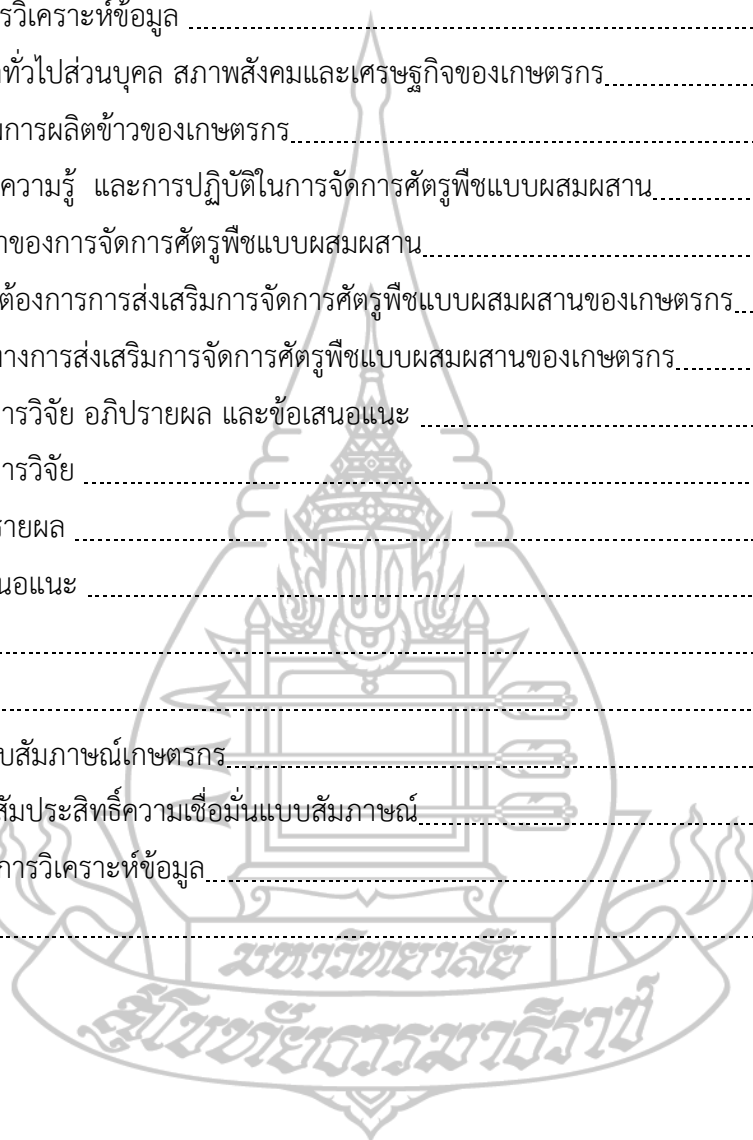 รวิเคราะห์ข้อมูล
ทั่วไปส่วนบุคล สภาพสังคมและเศรษฐกิจของเกษตรกร
การผลิตข้าวของเกษตรกร
ความรู้ และการปฏิบัติในการจัดการศัตรูพืชแบบผสมผสาน
ของการจัดการศัตรูพืชแบบผสมผสาน
ต้องการการส่งเสริมการจัดการศัตรูพืชแบบผสมผสานของเกษตรกร
ทางการส่งเสริมการจัดการศัตรูพืชแบบผสมผสานของเกษตรกร
ารวิจัย อภิปรายผล และข้อเสนอแนะ
ารวิจัย
รายผล
นอแนะ
บสัมภาษณ์เกษตรกร
สัมประสิทธิ์ความเชื่อมั่นแบบสัมภาษณ์
การวิเคราะห์ข้อมูล
มหาวิทยาลัย
สุโขทัยธรรมาธิราช